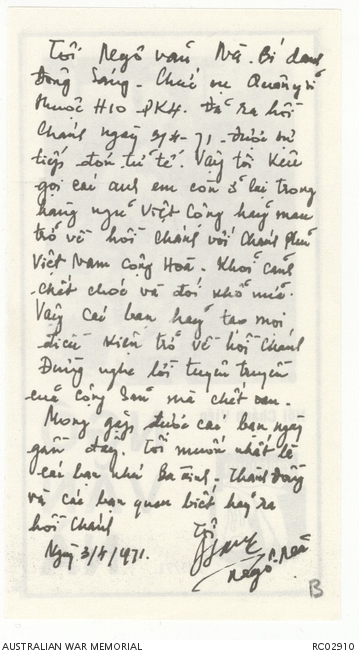 Tôi Ngô văn Nă. Bí danh
Đồng Sáng. Chức vụ Quân y sĩ
thuộc H10 - PK4. Đã ra hồi
Chánh ngày 3/4-71. Được sự
tiếp đón tử tế. Vậy tôi kêu
gọi các anh em còn ở lại trong
hàng ngũ Việt Cộng hãy mau
trở về hồi chánh với Chánh phủ
Việt Nam Cộng Hoà. Khỏi cảnh
chết chóc và đói khổ nữa.
Vậy các bạn hãy tạo mọi
điều kiện trở về hồi Chánh
Đừng nghe lời tuyên truyền
của Cộng Sản mà chết oan.
Mong gặp được các bạn ngày
gần đây. Tôi muốn nhất là
các bạn như Ba Thành
và các bạn quen biết hãy ra
hồi Chánh
Ngày 3/4/1971.
Tôi
Ngô-
B
AUSTRALIAN WAR MEMORIAL
RC02910